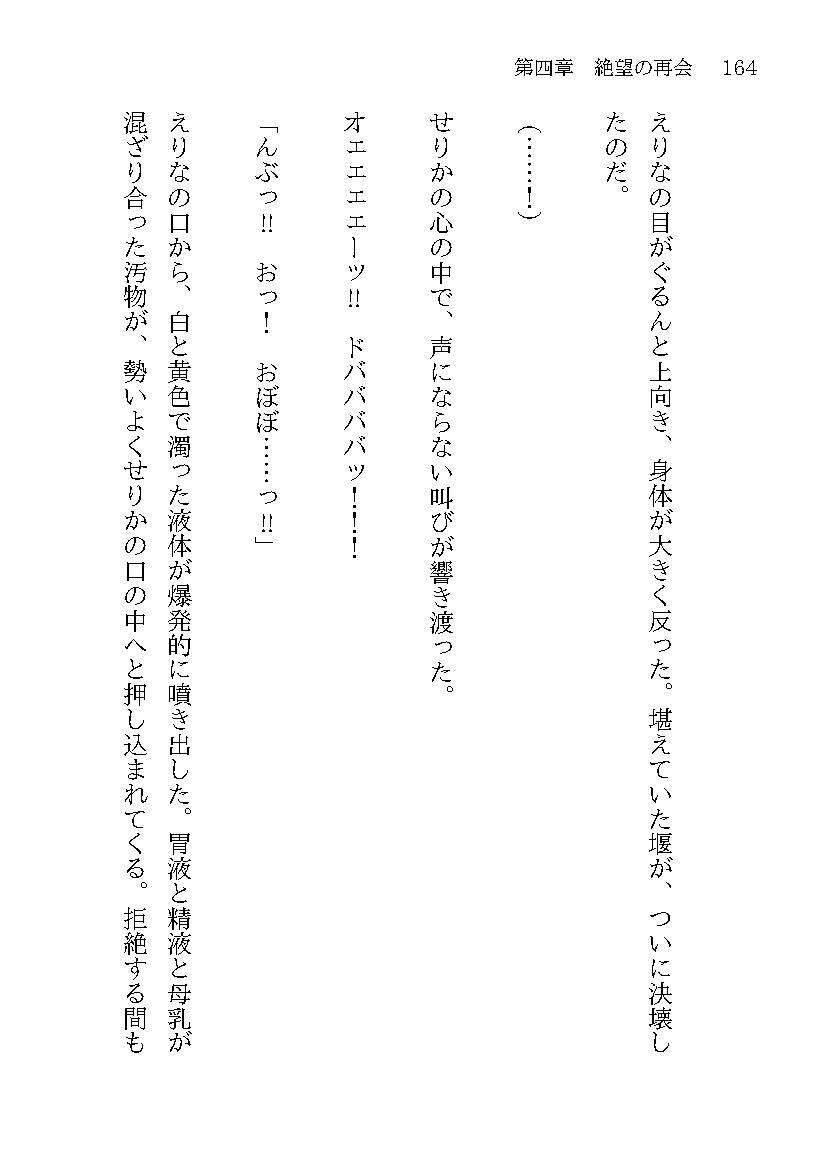 第四章　絶望の再会　164
えりなの目がぐるんと上向き、身体が大きく反った。堪えていた堰が、ついに決壊し
たのだ。
（……！）
せりかの心の中で、声にならない叫びが響き渡った。
オエエエエーッ!!　ドバババッ！！！
「んぶっ!!　おっ！　おぼぼ……っ!!」
えりなの口から、白と黄色で濁った液体が爆発的に噴き出した。胃液と精液と母乳が
混ざり合った汚物が、勢いよくせりかの口の中へと押し込まれてくる。拒絶する間も